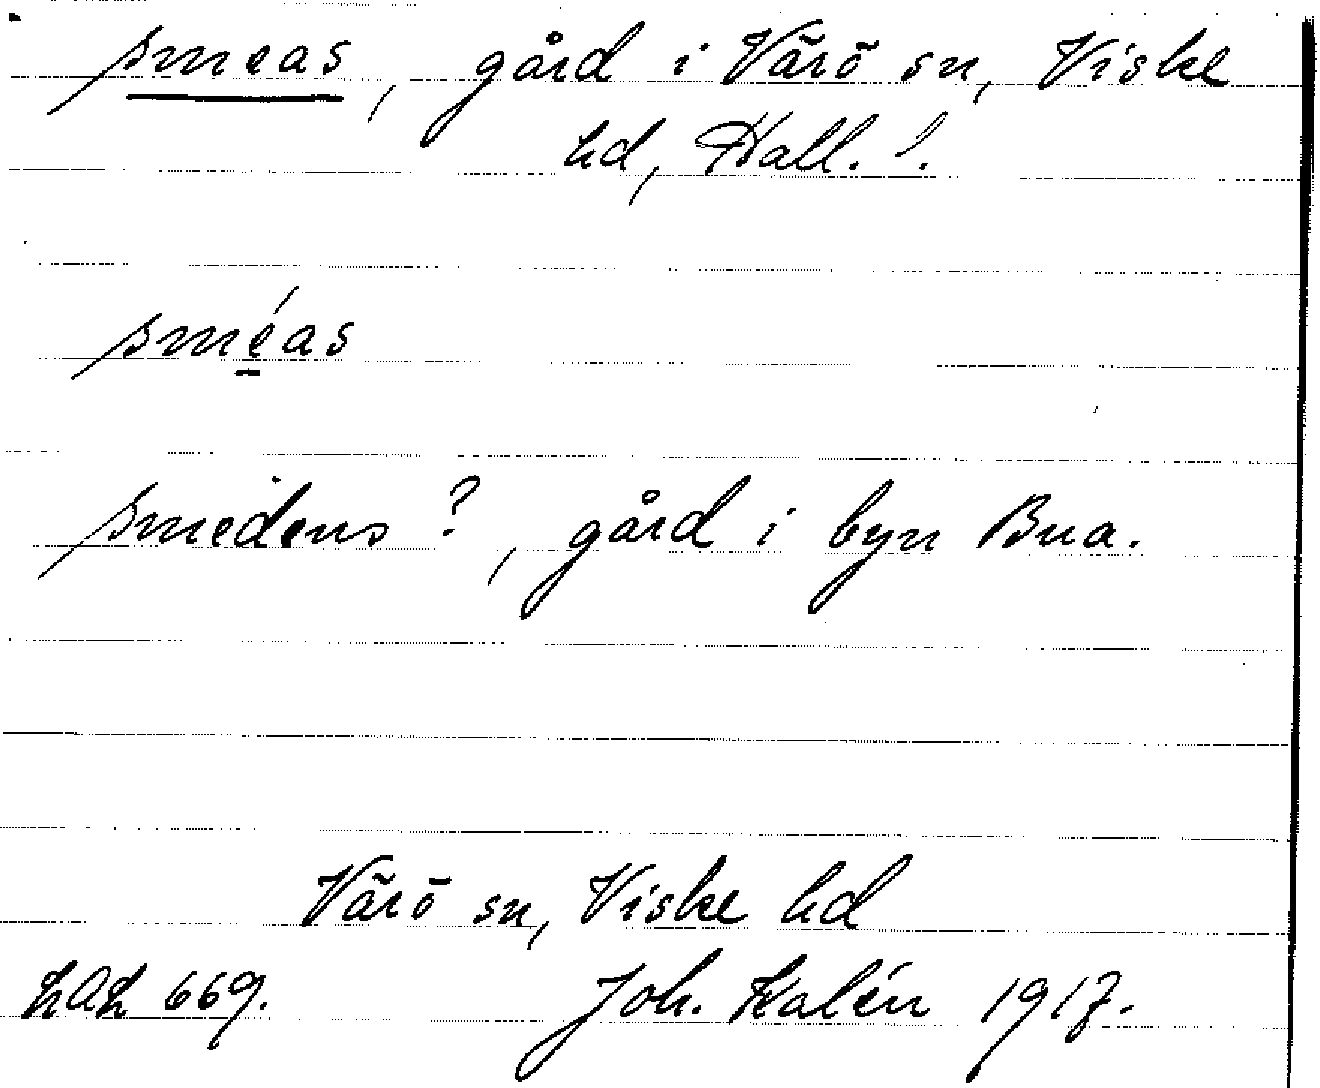 smeas, gård i Värö sn, Viske
hd, Hall. l.
sméas
smedens?, gård i byn Bua.
Värö sn, Viske hd
669. Joh. Kalén 1917.